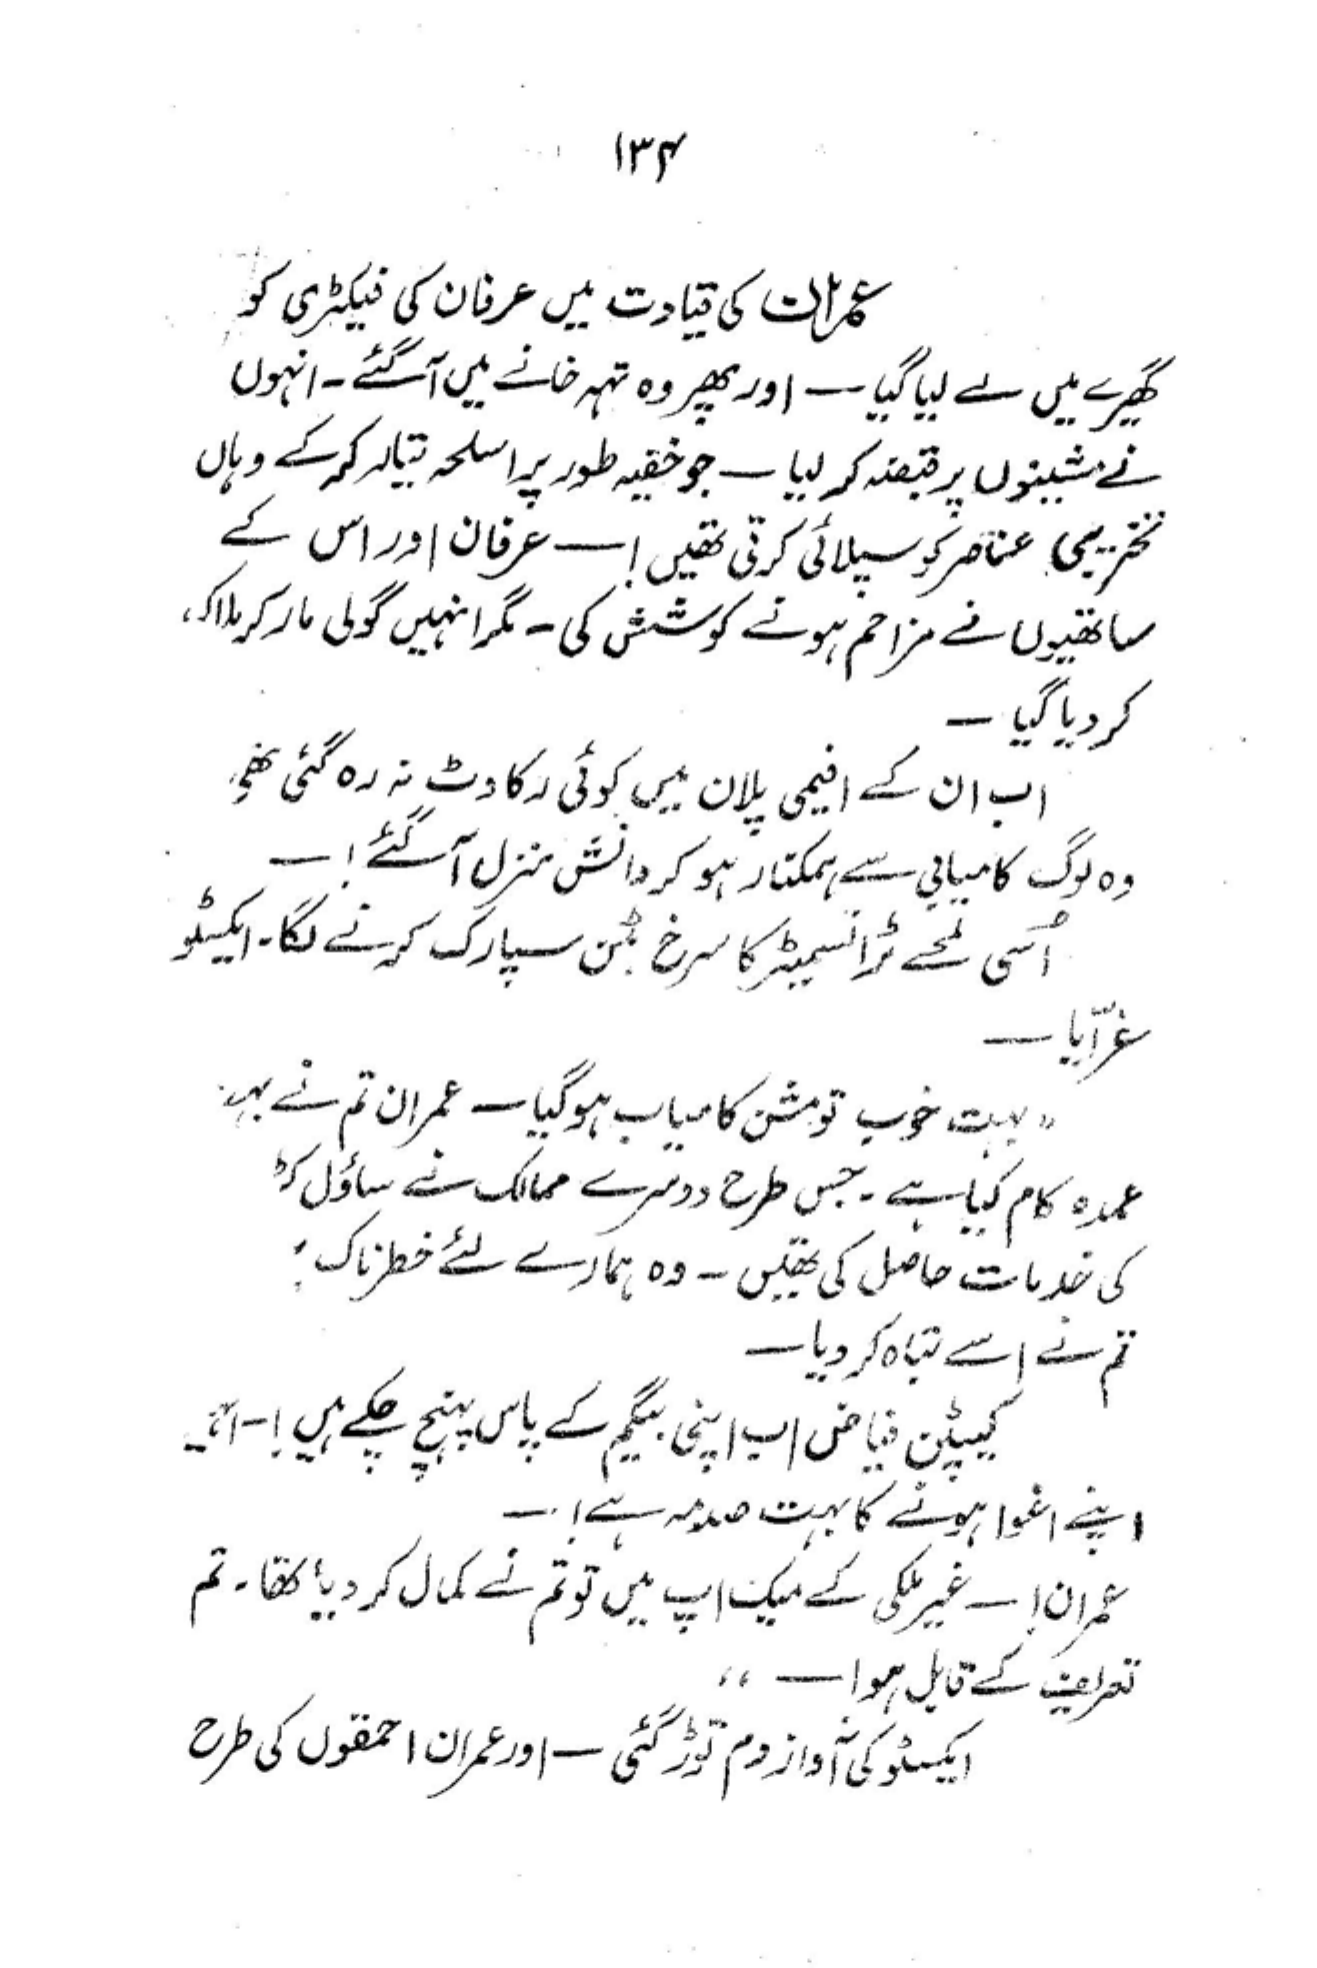 ۱۳۴
عمران کی قیادت میں عرفان کی فیکٹری کو
گھیرے میں لے لیا گیا — اور پھر وہ تہہ خانے میں آ گئے - انہوں
نے مشینوں پر قبضہ کر لیا — جو خفیہ طور پر اسلحہ تیار کر کے وہاں
تخریبی عناصر کو سپلائی کرتی تھیں ! — عرفان اور اس کے
ساتھیوں نے مزاحم ہونے کوشش کی - مگر انہیں گولی مار کر ہلاک
کر دیا گیا —
اب ان کے افیمی پلان میں کوئی رکاوٹ نہ رہ گئی تھی
وہ لوگ کامیابی سے ہمکنار ہو کر دانش منزل آ گئے ! —
اُسی لمحے ٹرانسمیٹر کا سرخ بٹن سپارک کرنے لگا - ایکسٹو
غرّایا —
" بہت خوب تو مشن کامیاب ہو گیا — عمران تم نے
عمدہ کام کیا ہے - جس طرح دوسرے ممالک نے ساؤل
کی خدمات حاصل کی تھیں - وہ ہمارے لئے خطرناک
تم نے اسے تباہ کر دیا —
کیپٹن فیاض اب اپنی بیگم کے پاس پہنچ چکے ہیں ! -
اپنے اغوا ہونے کا بہت صدمہ ہے ! —
عمران ! — غیر ملکی کے میک اپ میں تو تم نے کمال کر دیا تھا - تم
تعریف کے قابل ہوا — "
ایکسٹو کی آواز دم توڑ گئی — اور عمران احمقوں کی طرح